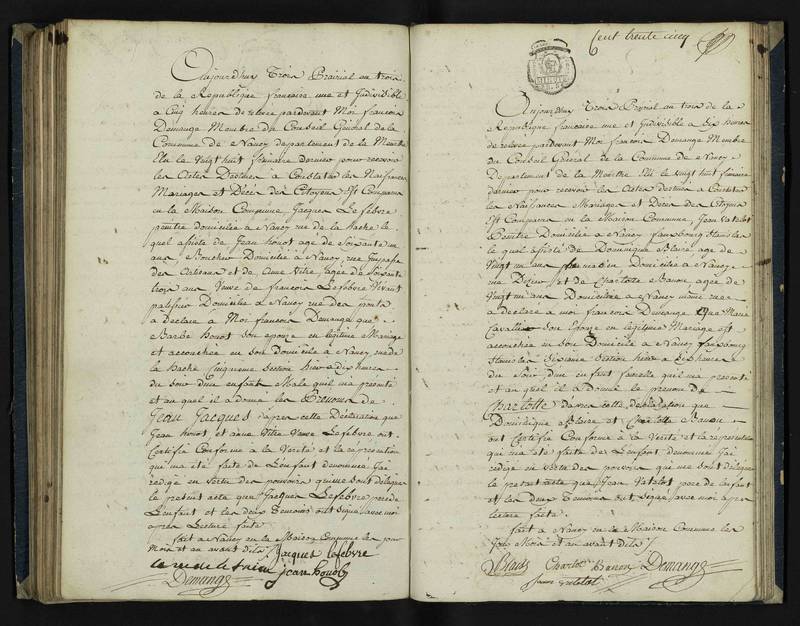 Aujourdhuy Trois Prairial an trois
de la Republique francaise une et Indivisible
a Cinq heures de relevée pardevant Moi francois
Demange Membre du Conseil General de la
Commune de Nancy departement de la Meurthe
Elu le Vingt huit frimaire dernier pour recevoir
les Actes Destinés a Constater les Naissances
Mariages et Décés des Citoyens Est Comparu
en la Maison Commune Jacques Lefebvre
peintre domicilié a Nancy rue de la hache le
quel assisté de Jean houot agé de soixante
ans, Boucher Domicilié a Nancy rue
des et de Anne Vitré agée de soixante
trois ans Veuve de francois Lefebvre Vivant
Domicilié a Nancy rue des ponts
a Déclaré à Moi francois Demange que
Barbe houot son epouse en légitime Mariage
est accouchée en son Domicile a Nancy rue de
la hache Cinquieme Section hier a dix heures
du soir d'un enfant Male quil ma presenté
et au quel il a donné les Prenoms de
Jean Jacques d'apres cette Déclaration que
Jean houot et anne Vitré Veuve Lefebvre ont
Certifié Conforme a la Verité et la représentation
qui ma été faite de L'enfant denommé Jai
redigé en vertu des pouvoirs qui me sont délégués
le present acte que Jacques Lefebvre pere de
L'enfant et les deux temoins ont signé avec moi
apres Lecture faite
fait a Nancy en la Maison Commune les jour
Mois et an avant dits /. Jacques lefebvre
jean houot
Demange
Cent trente cinq
Aujourdhuy Trois Prairial an trois de la
Republique francaise une et Indivisible a Six heures
de relevée pardevant Moi francois Demange Membre
du Conseil Général de la Commune de Nancy
Departement de la Meurthe Elu le Vingt huit frimaire
dernier pour recevoir les Actes destinés a Constater
les Naissances Mariages et Décés des Citoyens
Est Comparu en la Maison Commune, Jean Vatelot
Peintre Domicilié a Nancy fauxbourg Stanislas
le quel assisté de Dominique Blaise agé de
Vingt un ans Domicilié a Nancy
rue et de Charlotte Banon agée de
Vingt un ans Domiciliée a Nancy même rue
a déclaré a moi francois Demange Que Marie
Cavallier son Epouse en légitime Mariage est
accouchée en son Domicile a Nancy fauxbourg
Stanislas Sixieme Section hier a Six heures
du Soir d'un enfant femelle quil ma presenté
et au quel il a Donné le prenom de
Charlotte d'apres cette déclaration que
Dominique Blaise et Charlotte Banon
ont Certifié Conforme à la Verité et la représentation
qui ma été faite de L'enfant denommé Jai
redigé en vertu des pouvoirs qui me sont délégués
le present acte que Jean Vatelot pere de l'enfant
et les deux Temoins ont signé avec moi apres
lecture faite.
fait a Nancy en la Maison Commune les
Jour Mois et an avant dits /.
Blaise Charlotte Banon Demange
Jean Vatelot